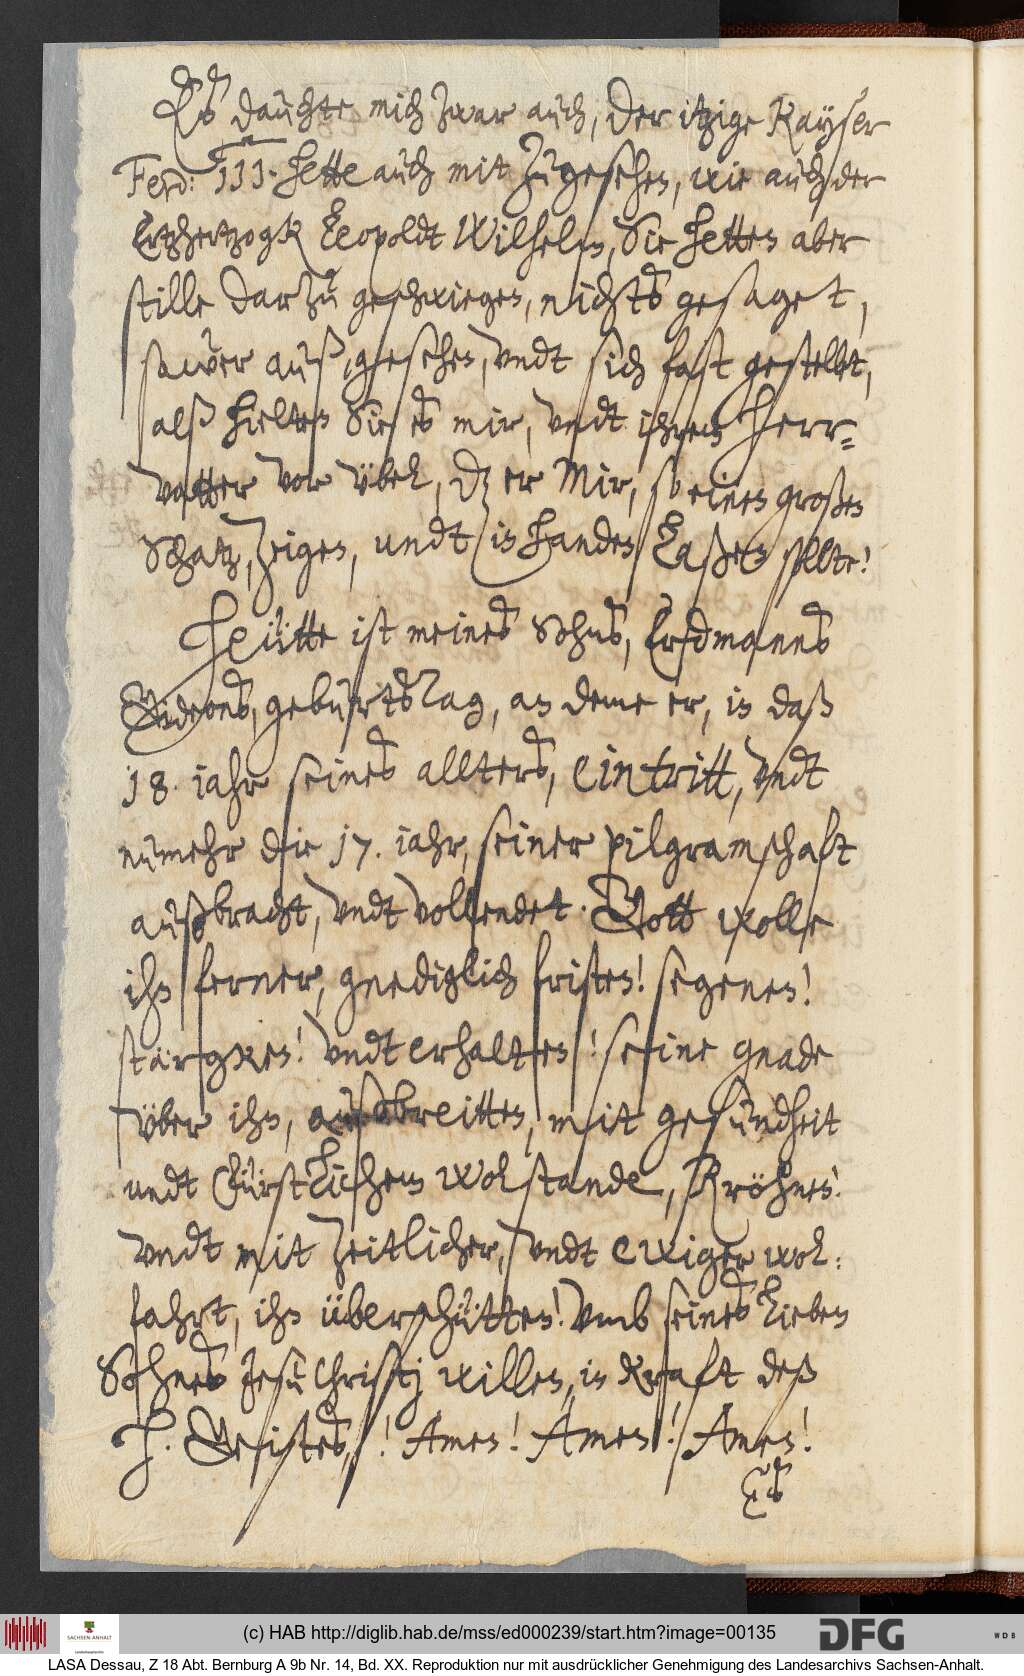 Es dauchte mich zwar auch, der itzige Kayser
Ferd: III. hette auch mit zugesehen, wie auch der
Ertzhertzogk Leopoldt Wilhelm, Sie hetten aber
stille darzu geschwiegen, nichts gesaget,
sawer auß, gesehen, undt sich fast gestellet,
alß hielten Sie es mir, undt ihrem Herr¬
vatter vor übel, dz er Mir, so einen großen
Schatz, zeigen, undt in handen laßen sollte!
Heütte ist meines Sohns, Erdmanns
Gideons, geburtsTag, an deme er, in daß
18. iahr seines allters, eintritt, undt
numehr die 17. iahr, seiner pilgramschaft
außbracht, undt vollendet. Gott wolle
ihn ferner, gnediglich fristen! segenen!
stärgken! undt erhalten! seine gnade
über ihn, außbreitten, mit gesundheit
undt Fürstlichem wolstande, Kröhnen!
undt mit zeitlicher, undt ewiger wol:
fahrt, ihn überschütten! umb seines lieben
Sohnes Jesu Christj willen, in Kraft deß
H. Geistes,! Amen! Amen! Amen!
Es
SACHSEN-ANHALT
(c) HAB http://diglib.hab.de/mss/ed000239/start.htm?image=00135
DFG
WDB
LASA Dessau, Z 18 Abt. Bernburg A 9b Nr. 14, Bd. XX. Reproduktion nur mit ausdrücklicher Genehmigung des Landesarchivs Sachsen-Anhalt.